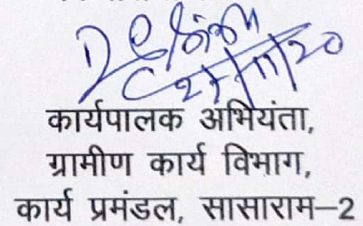 27/11/20
कार्यपालक अभियंता,
ग्रामीण कार्य विभाग,
कार्य प्रमंडल, सासाराम–2